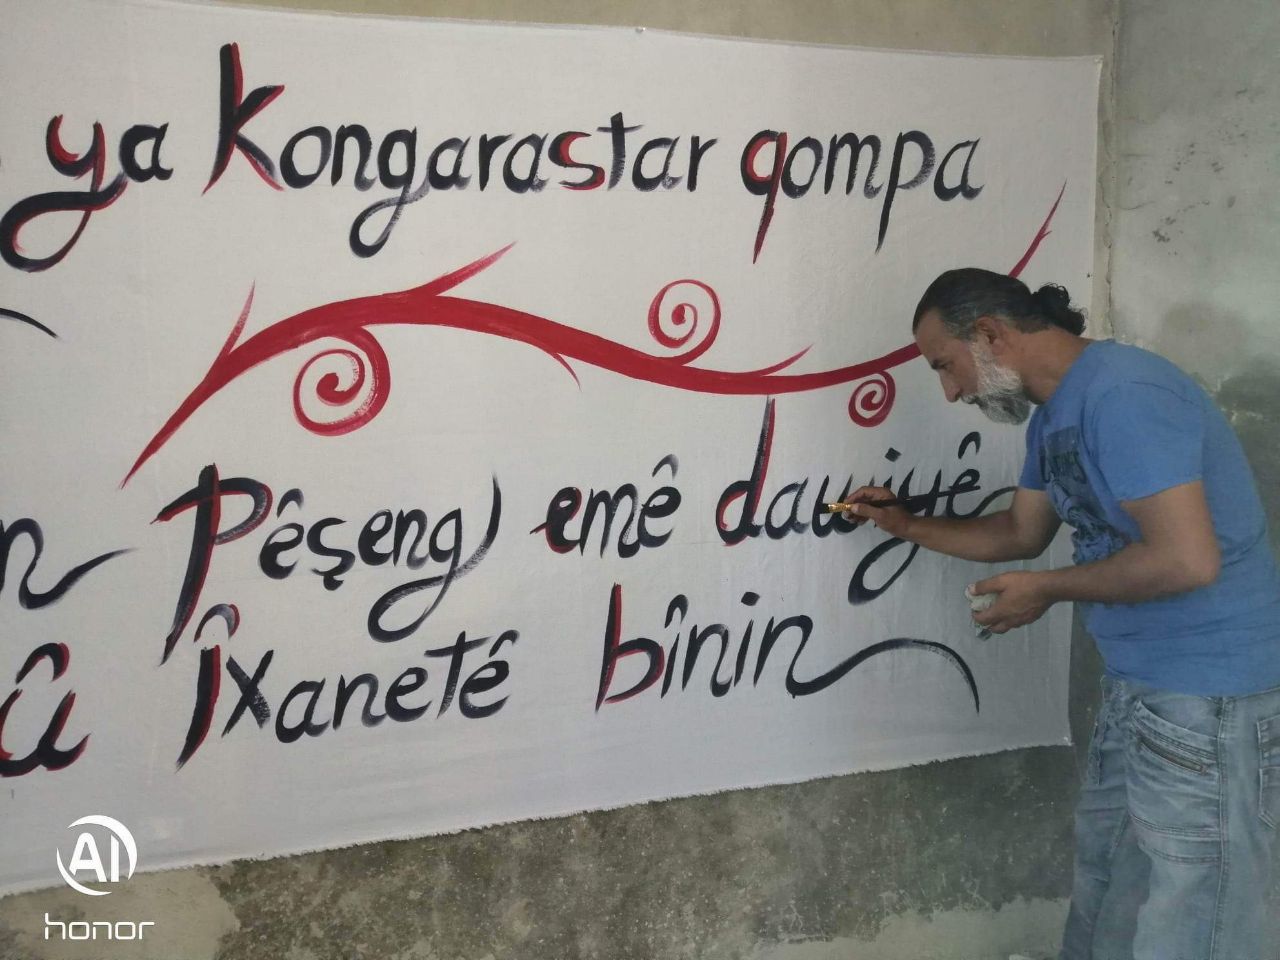 ya Kongarastar qompa
n Pêşeng emê dawiyê
û Îxanetê bînin
AI
honor